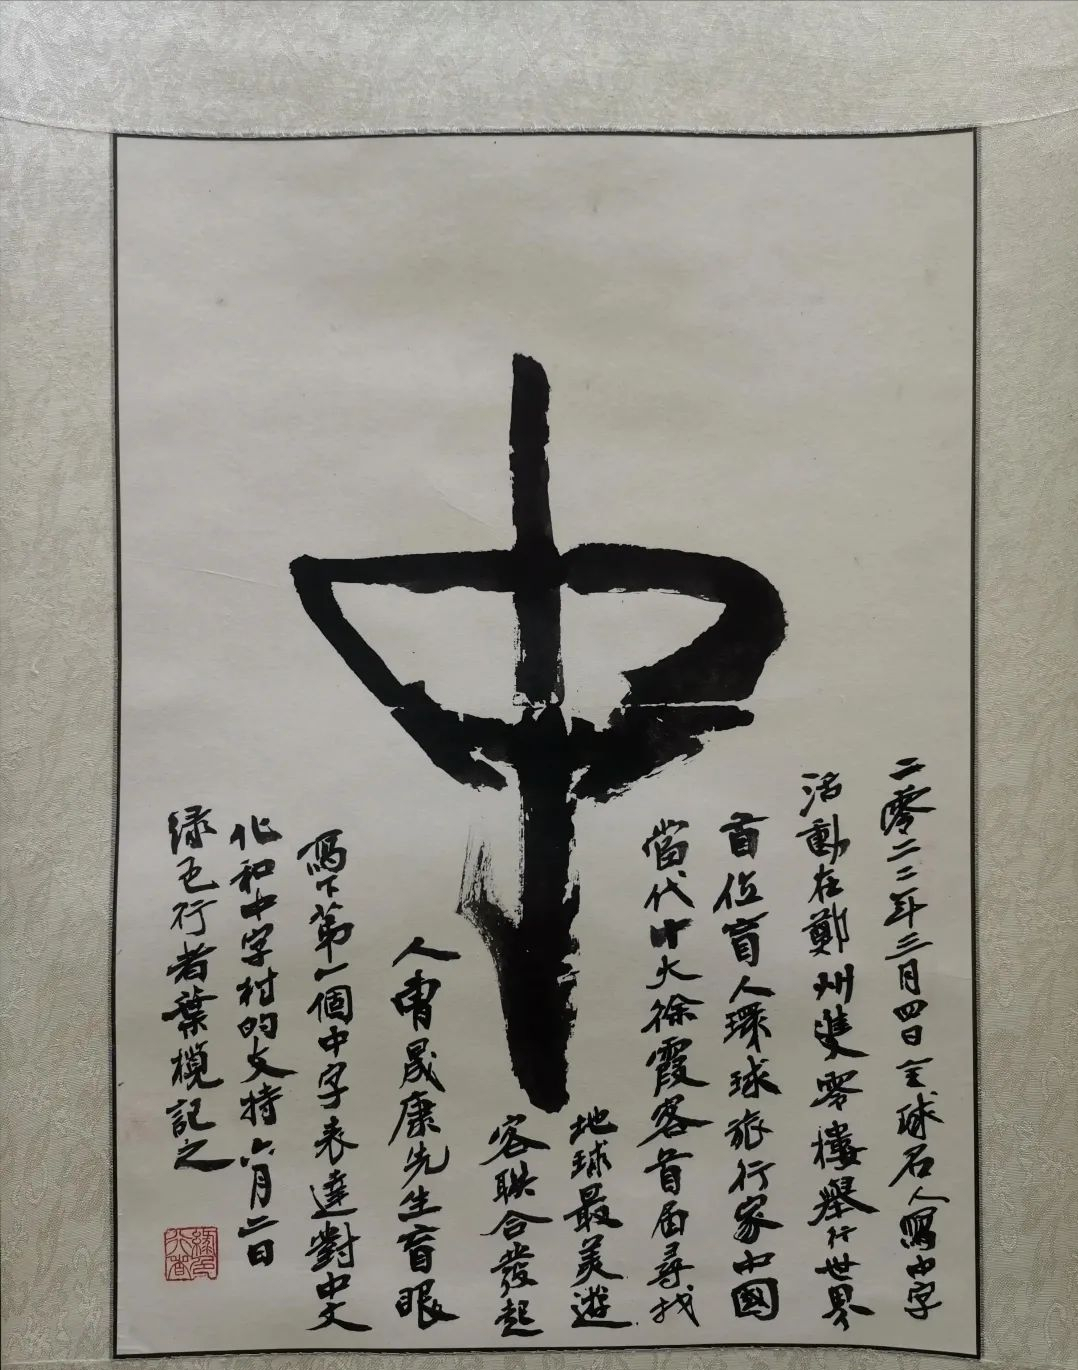 中
二零二二年三月四日全球名人寫中字
活動在鄭州雙零樓舉行世界
首位盲人環球旅行家中國
當代中大徐霞客首届尋找
地球最美遊
客联合發起
人曹晟康先生盲眼
寫下第一個中字表達對中文
化和中字村的支持六月二日
绿色行者葉榄記之
綠色行者